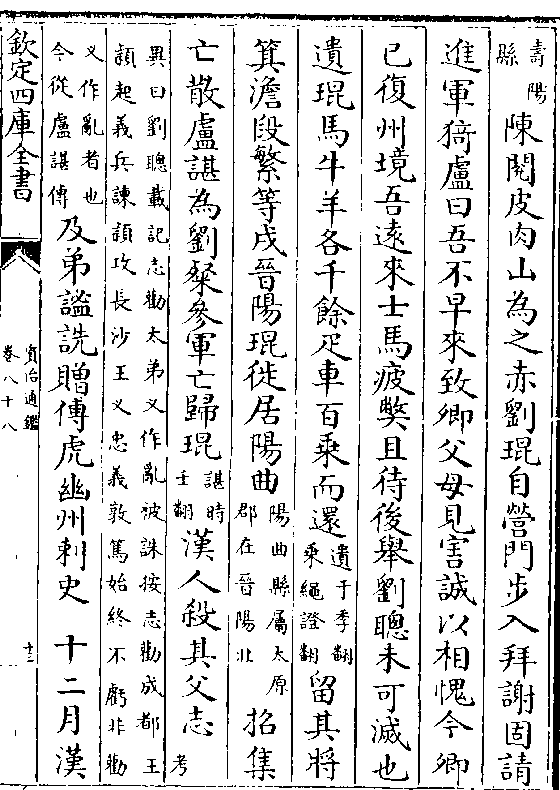 壽陽縣陳閱皮肉山為之赤劉琨自營門步入拜謝固請
進軍猗盧曰吾不早來致卿父母見害誠以相愧今卿
已復州境吾遠來士馬疲弊且待後舉劉聰未可滅也
遺琨馬牛羊各千餘疋車百乘而還遺于季翻乘繩證翻留其將
箕澹段繁等戍晉陽琨徙居陽曲陽曲縣屬太原郡在晉陽北招集
亡散盧諶為劉粲參軍亡歸琨諶時壬翻漢人殺其父志考
異曰劉聰載記志勸太弟乂作亂被誅按志勸成都王
穎起義兵諫穎攻長沙王乂忠義敦篤始終不虧非勸
乂作亂者也今從盧諶傳及弟謐詵贈傅虎幽州刺史 十二月漢
欽定四庫全書
資治通鑑
卷八十八
十三